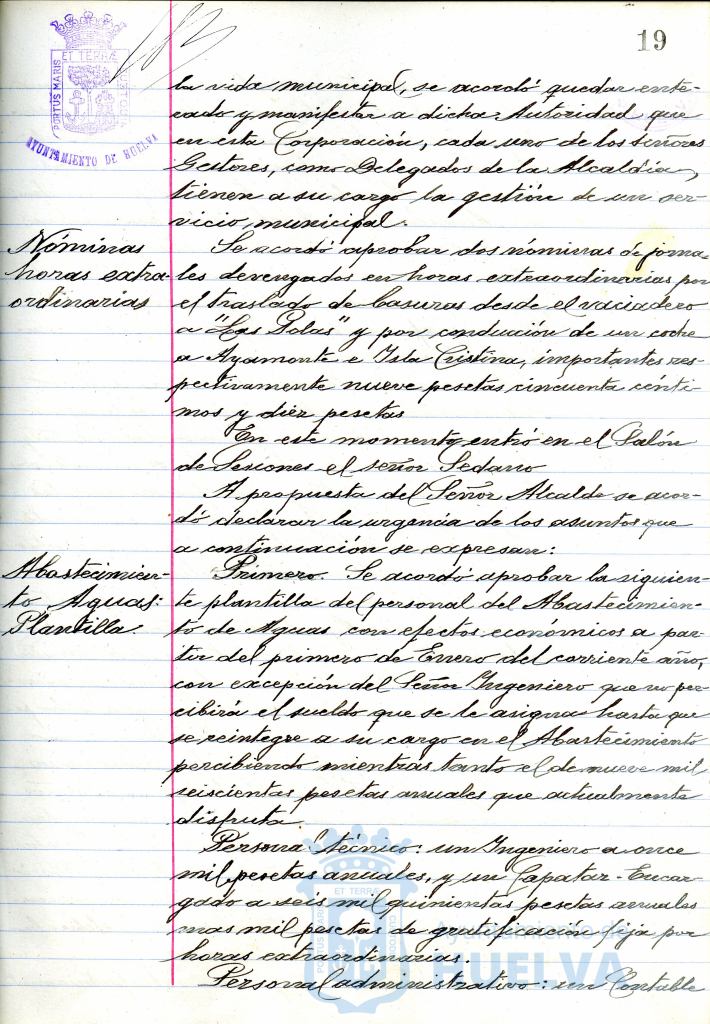 19
PORTUS MARIS
ET TERRÆ
CUSTODIA
AYUNTAMIENTO DE HUELVA
la vida municipal, se acordó quedar ente-
rado y manifestar a dicha Autoridad que
en esta Corporación, cada uno de los señores
Gestores, como Delegados de la Alcaldía,
tienen a su cargo la gestión de un ser-
vicio municipal.
Nóminas
horas extra-
ordinarias
Se acordó aprobar dos nóminas de jorna-
les devengados en horas extraordinarias por
el traslado de basuras desde el vaciadero
a "Las Polas" y por conducción de un coche
a Ayamonte e Isla Cristina, importantes res-
pectivamente nueve pesetas cincuenta cénti-
mos y diez pesetas
En este momento entró en el Salón
de Sesiones el señor Sedano
A propuesta del Señor Alcalde se acor-
dó declarar la urgencia de los asuntos que
a continuación se expresan:
Abastecimien-
to Aguas.
Plantilla.
Primero. Se acordó aprobar la siguien-
te plantilla del personal del Abastecimien-
to de Aguas con efectos económicos a par-
tir del primero de Enero del corriente año,
con excepción del Señor Ingeniero que no per-
cibirá el sueldo que se le asigna hasta que
se reintegre a su cargo en el Abastecimiento
percibiendo mientras tanto el de nueve mil
seiscientas pesetas anuales que actualmente
disfruta
Personal técnico: un Ingeniero a once
mil pesetas anuales, y un Capataz-Encar-
gado a seis mil quinientas pesetas anuales
mas mil pesetas de gratificación fija por
horas extraordinarias.
Personal administrativo: un Contable
PORTUS MARIS
ET TERRÆ
CUSTODIA
Ayuntamiento de
HUELVA